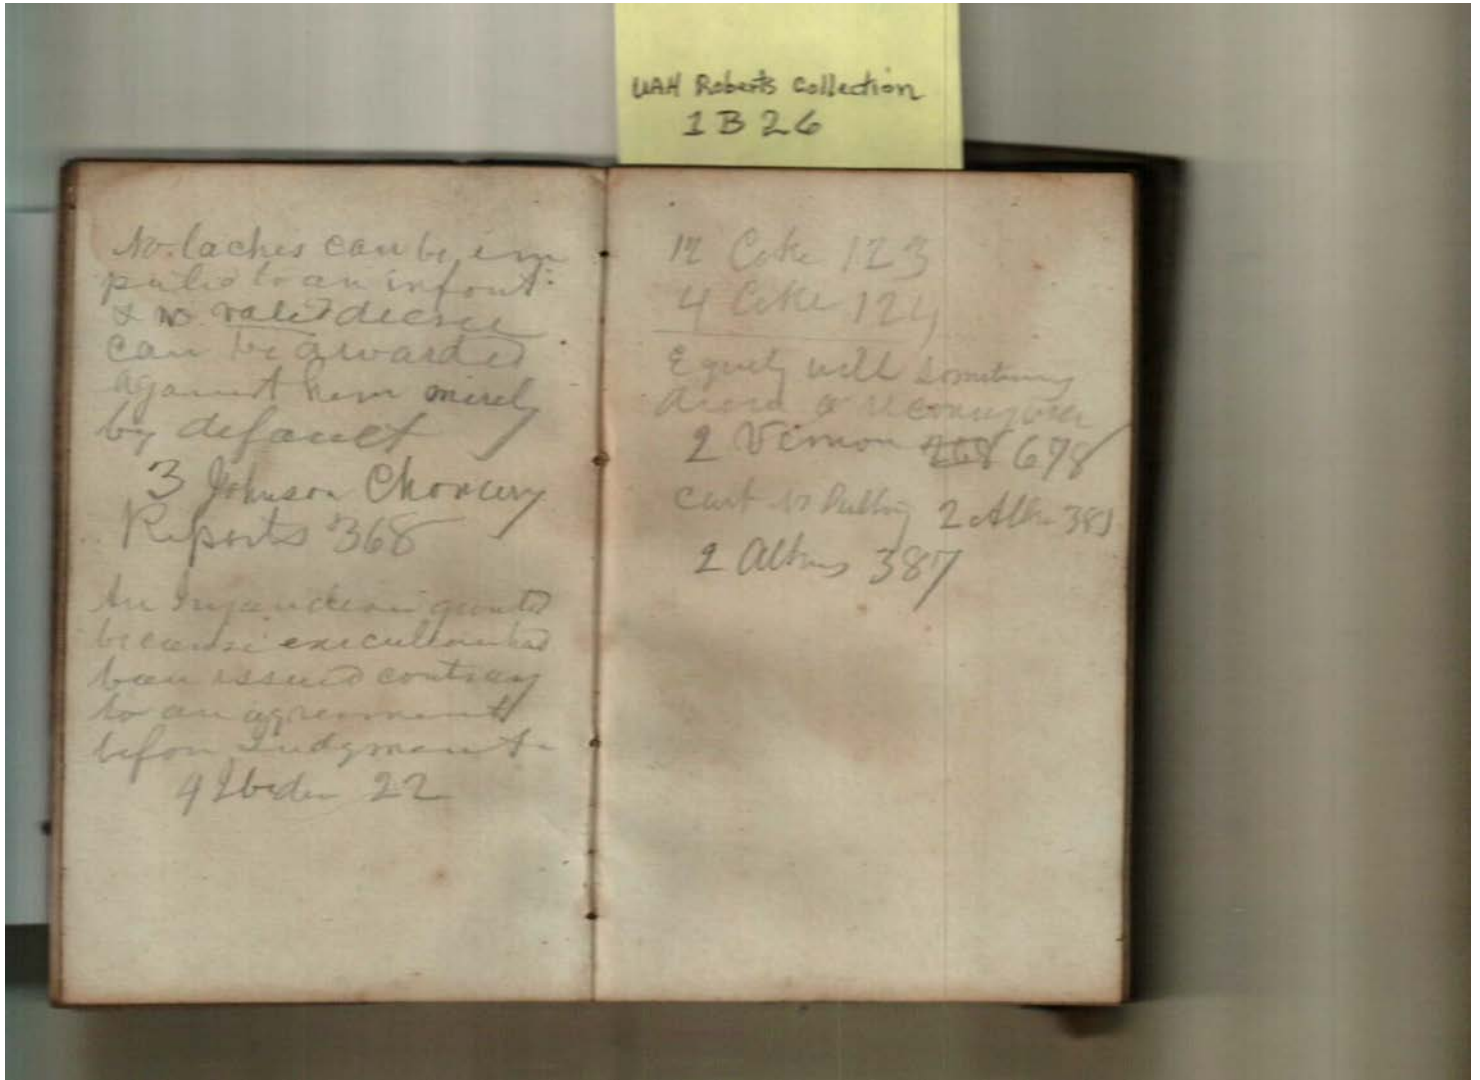 UAH Roberts Collection
1B26
No laches can be im
puted to an infant:
& no valid decree
can be awarded
against him merely
by default
3 Johnson Chancery
Reports 368
An Injunction granted
because execution had
been issued contrary
to an agreement
before Judgment
4 Ibidem 22
12 Coke 123
4 Coke 124
Equity will sometimes
decree a reconveyance
2 Vernon 268 678
vs Pulling 2 Atk 38
2 Atkins 387